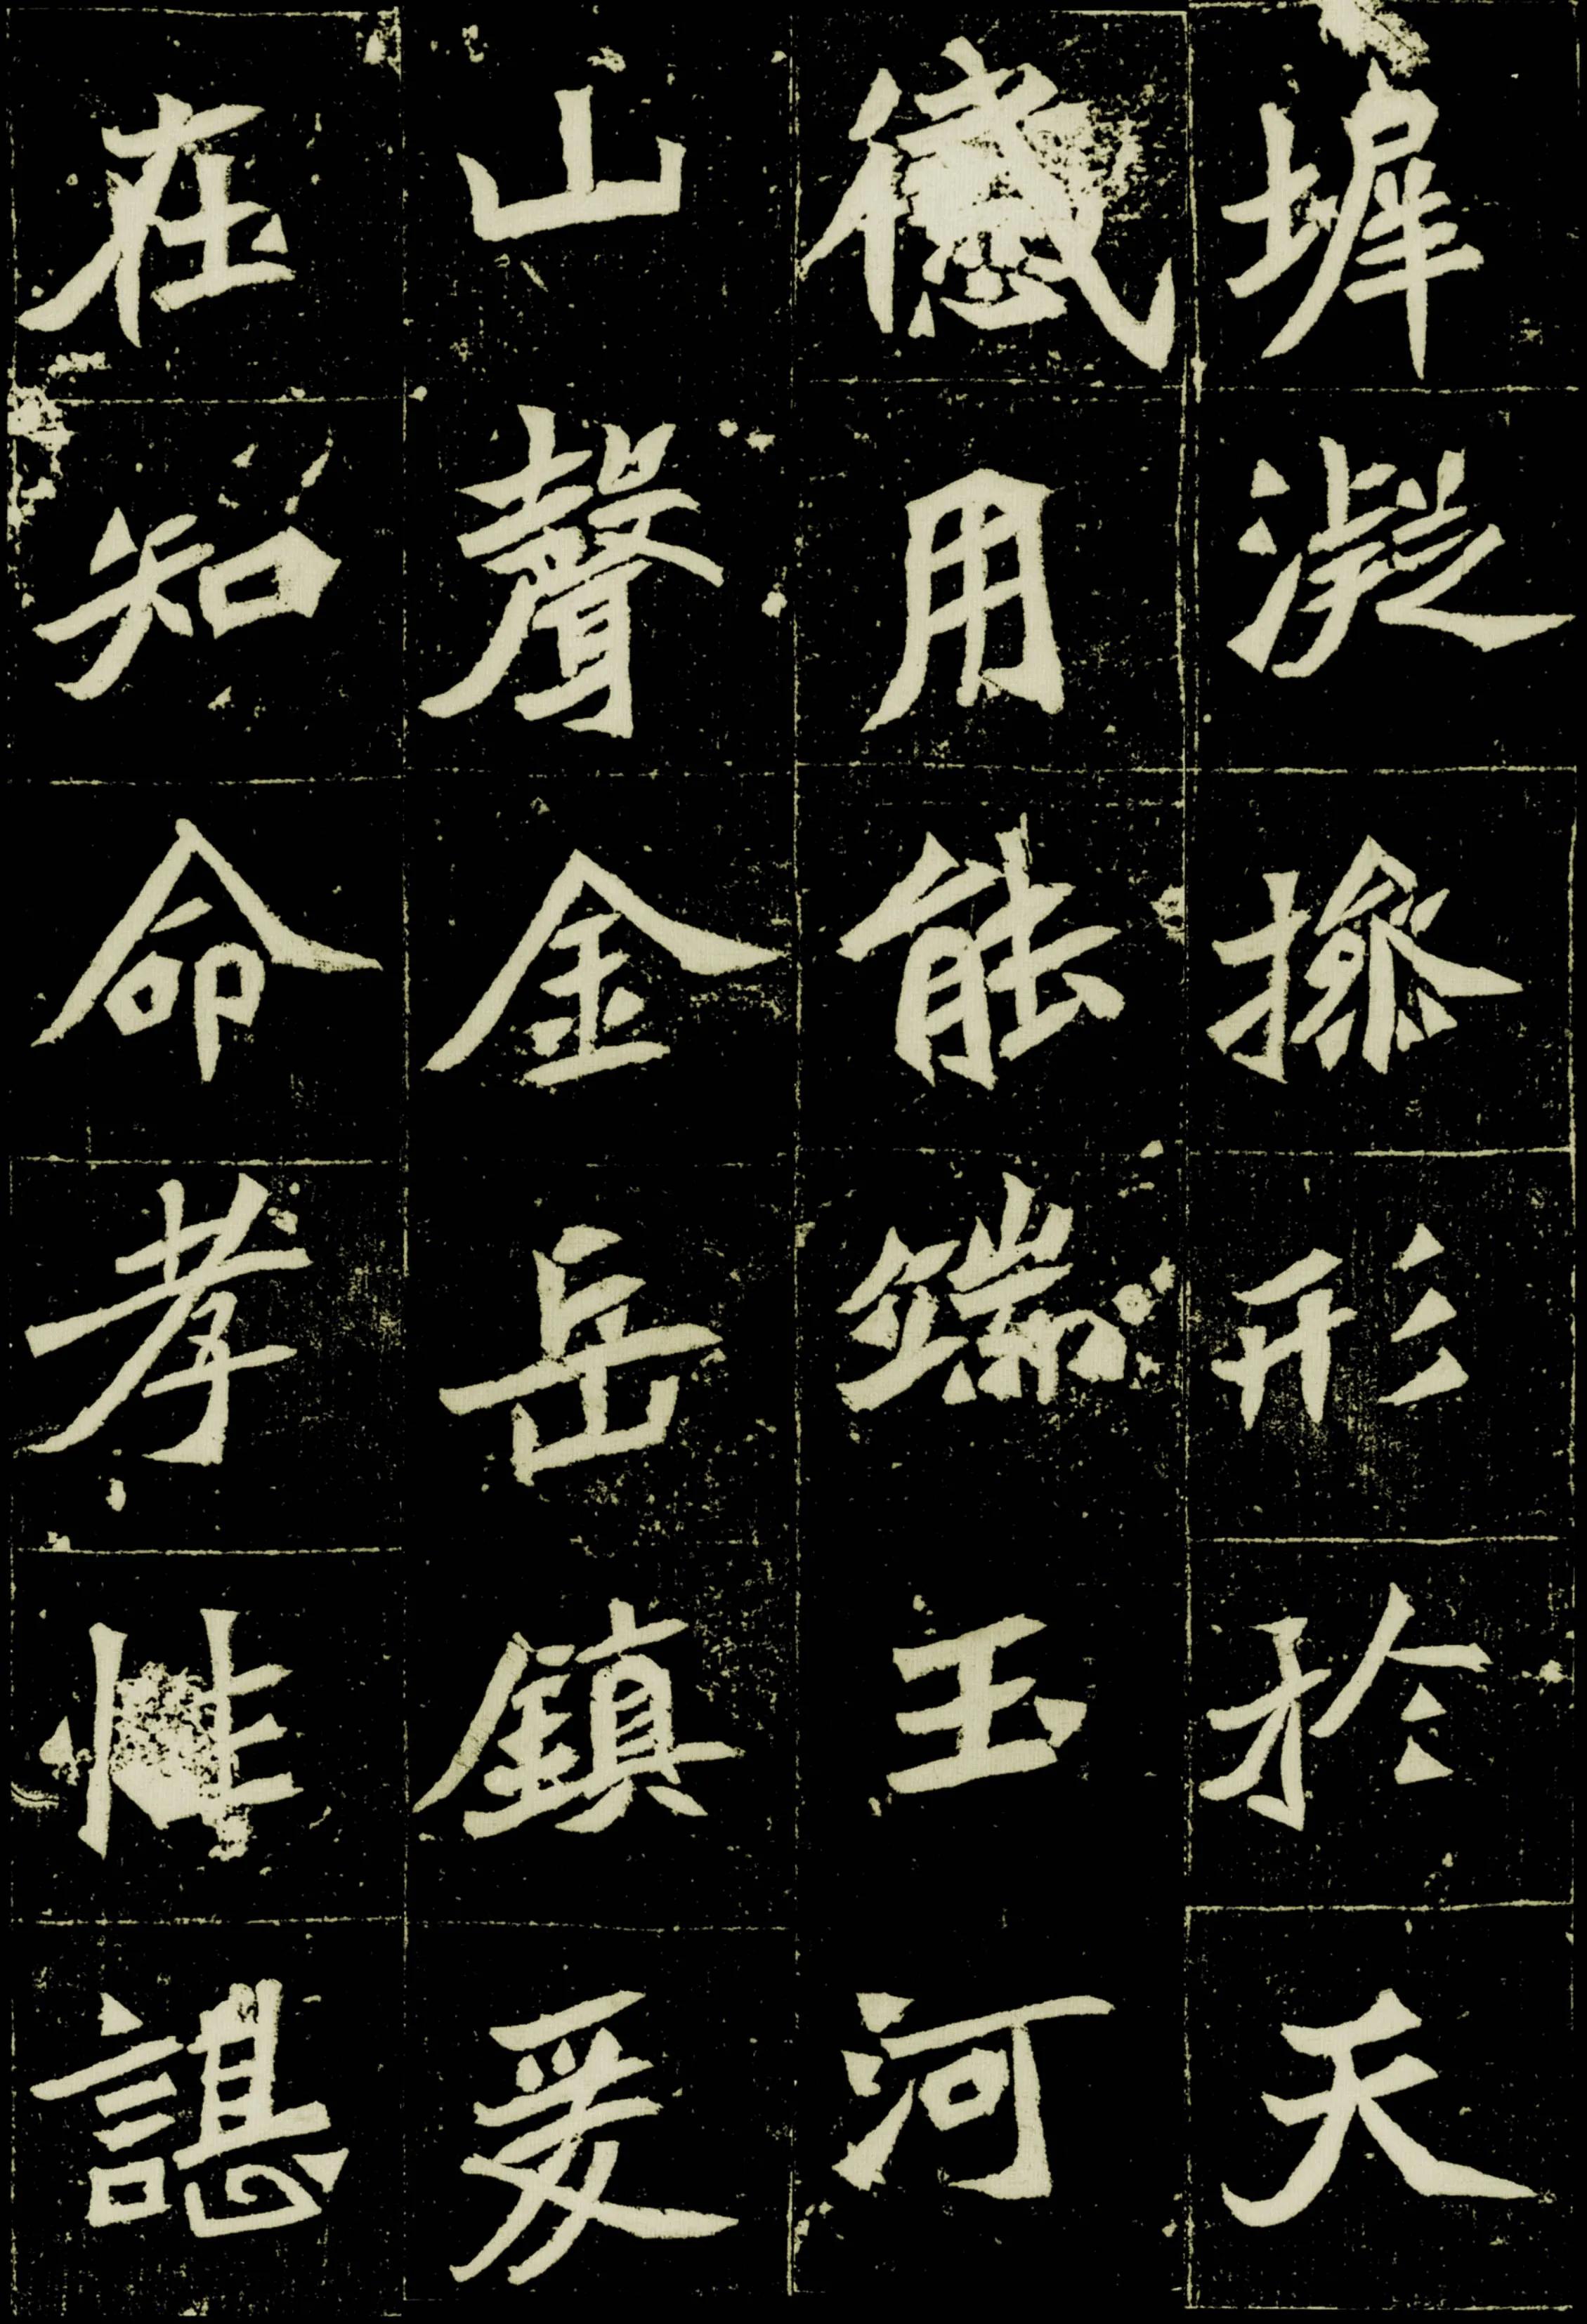 墀凝摻形於天
感用能端玉河
山聲金岳鎮爰
在知命孝性諶